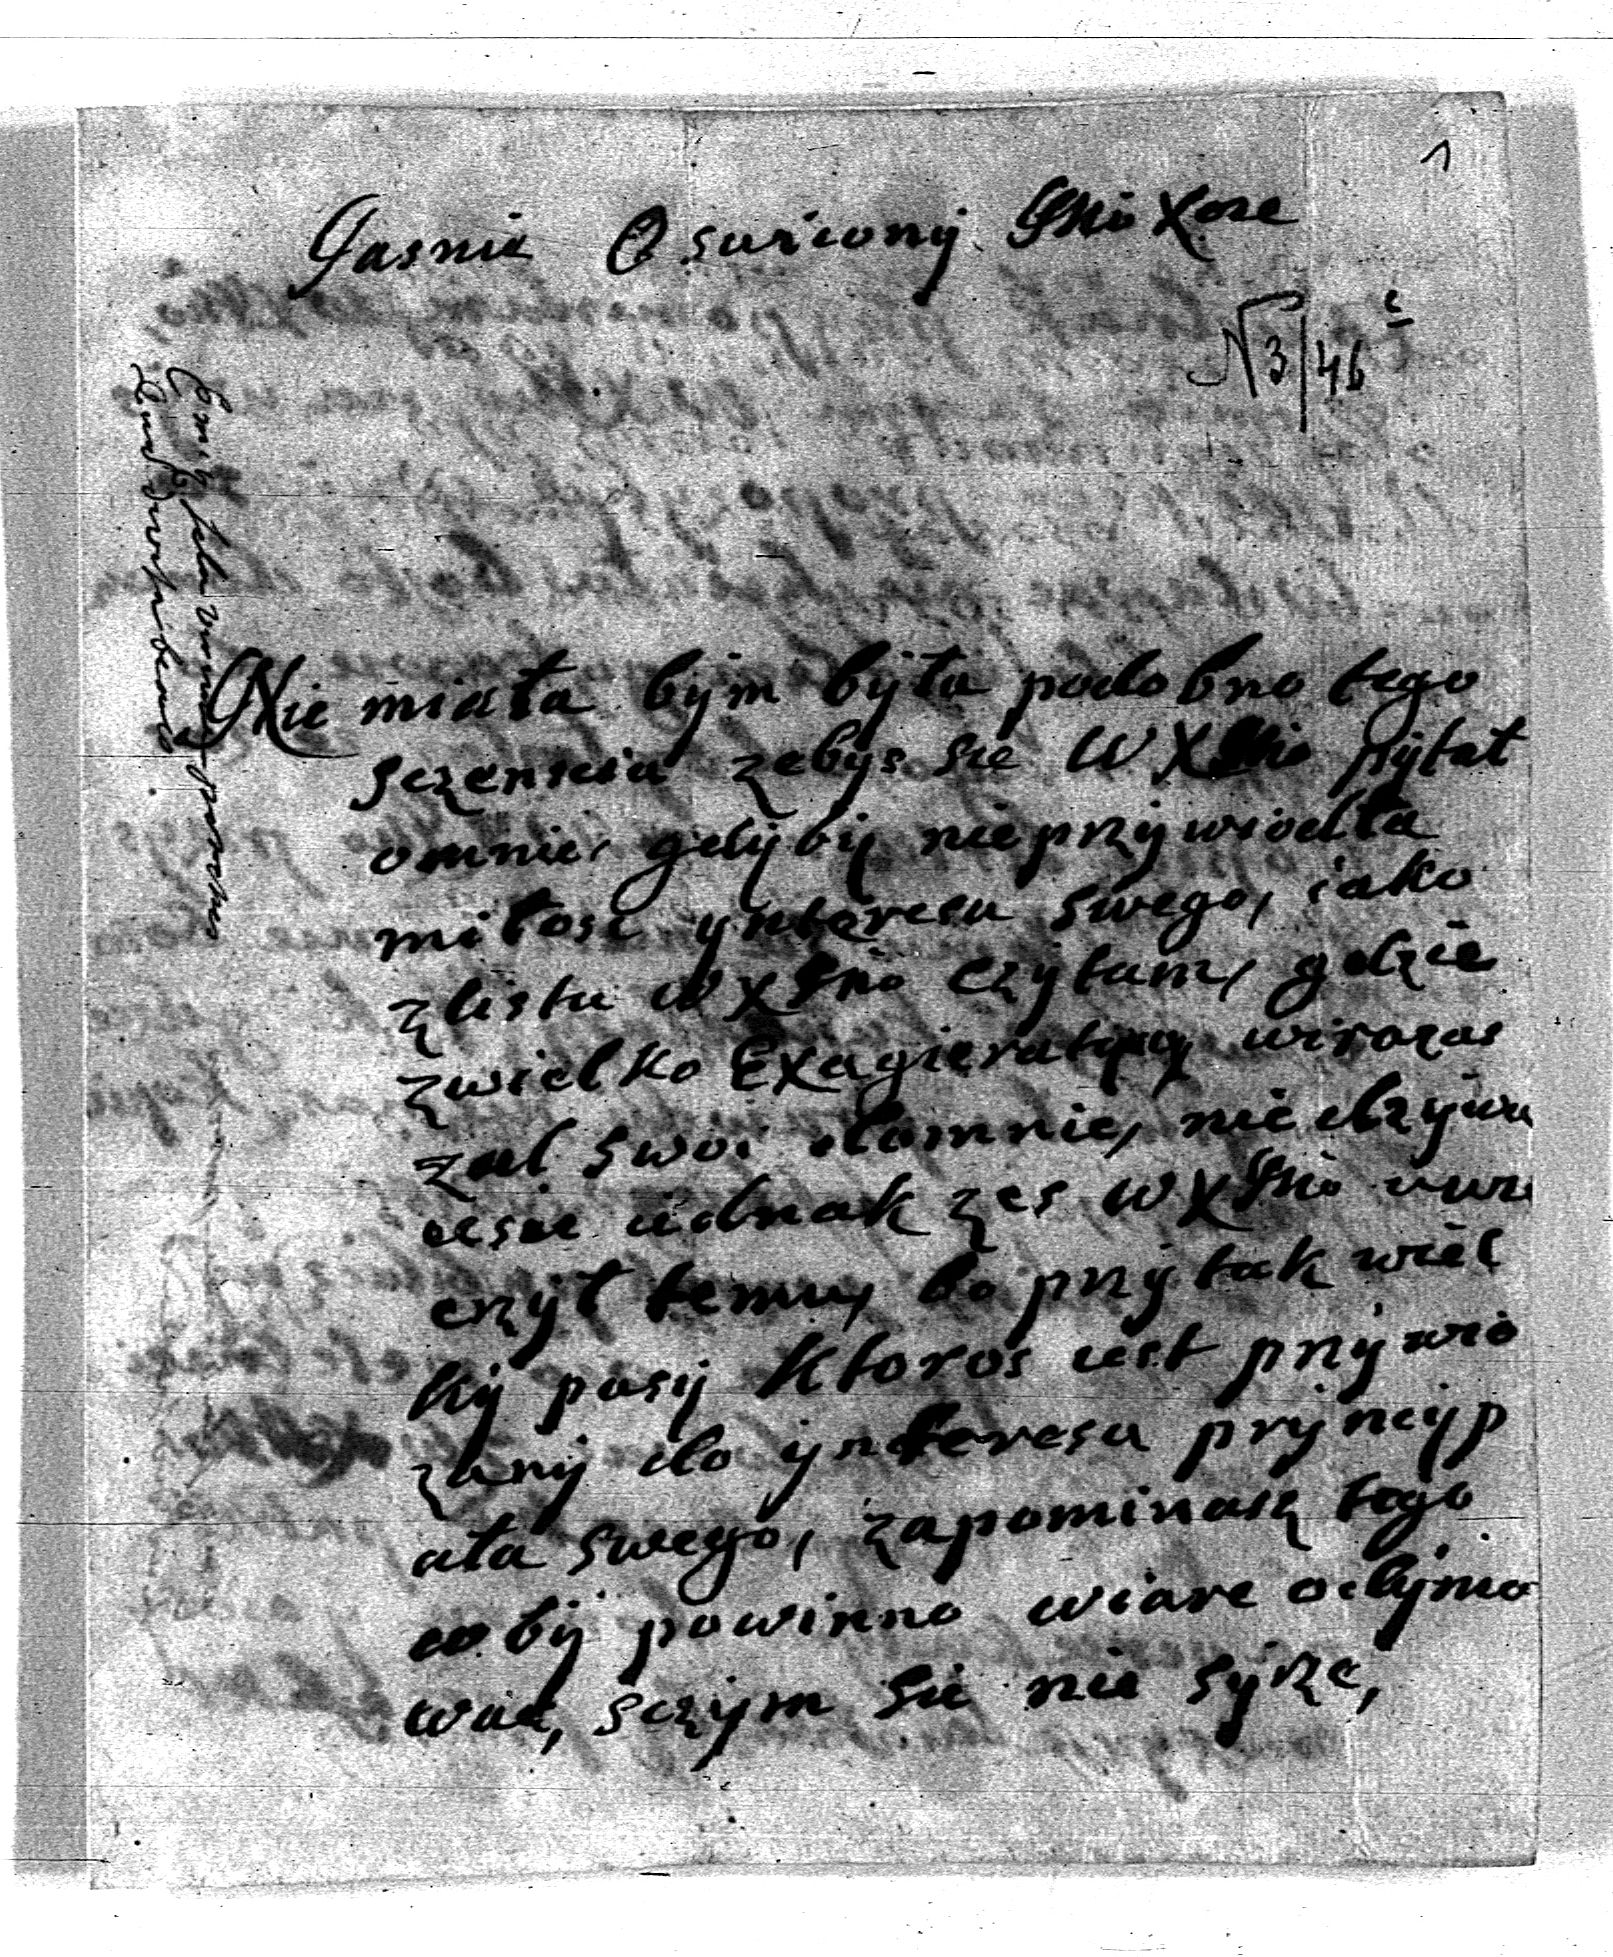 1
Jasnie Oswiconÿ Mśo Xoze
N 3/46
Nie miała bÿm bÿła podobno tego
sczensia zebÿs sie W X Mśo pÿtał
omnie, gdÿbÿ nieprzÿwiodła
miłosc ynteresu swego, iako
zlistu W X Mśo czÿtam, gdzie
zwielko Exagieratÿÿ wirazas
zal swoi domnie, nie dzÿwu
iesie iednak zes W X Mśo
czÿł temu, bo przÿtak wiel
kÿ pasÿ ktoros iest przÿwio
zanÿ do ÿnteresu prÿncÿp
ała swego, zapominasz tego
co bÿ powinno wiare odÿmo
wac, sczÿm sie nie sÿrze,